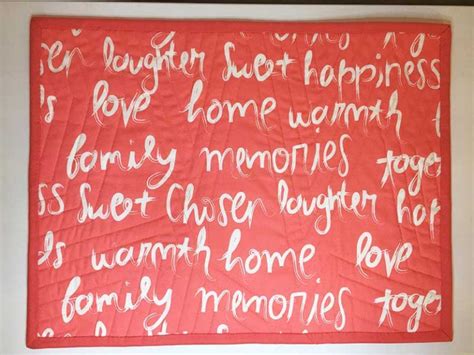 sen laughter sweet happiness
ls love home warmth
family memories toge
ss sweet chosen laughter hap
ls warmth home love
family memories toge